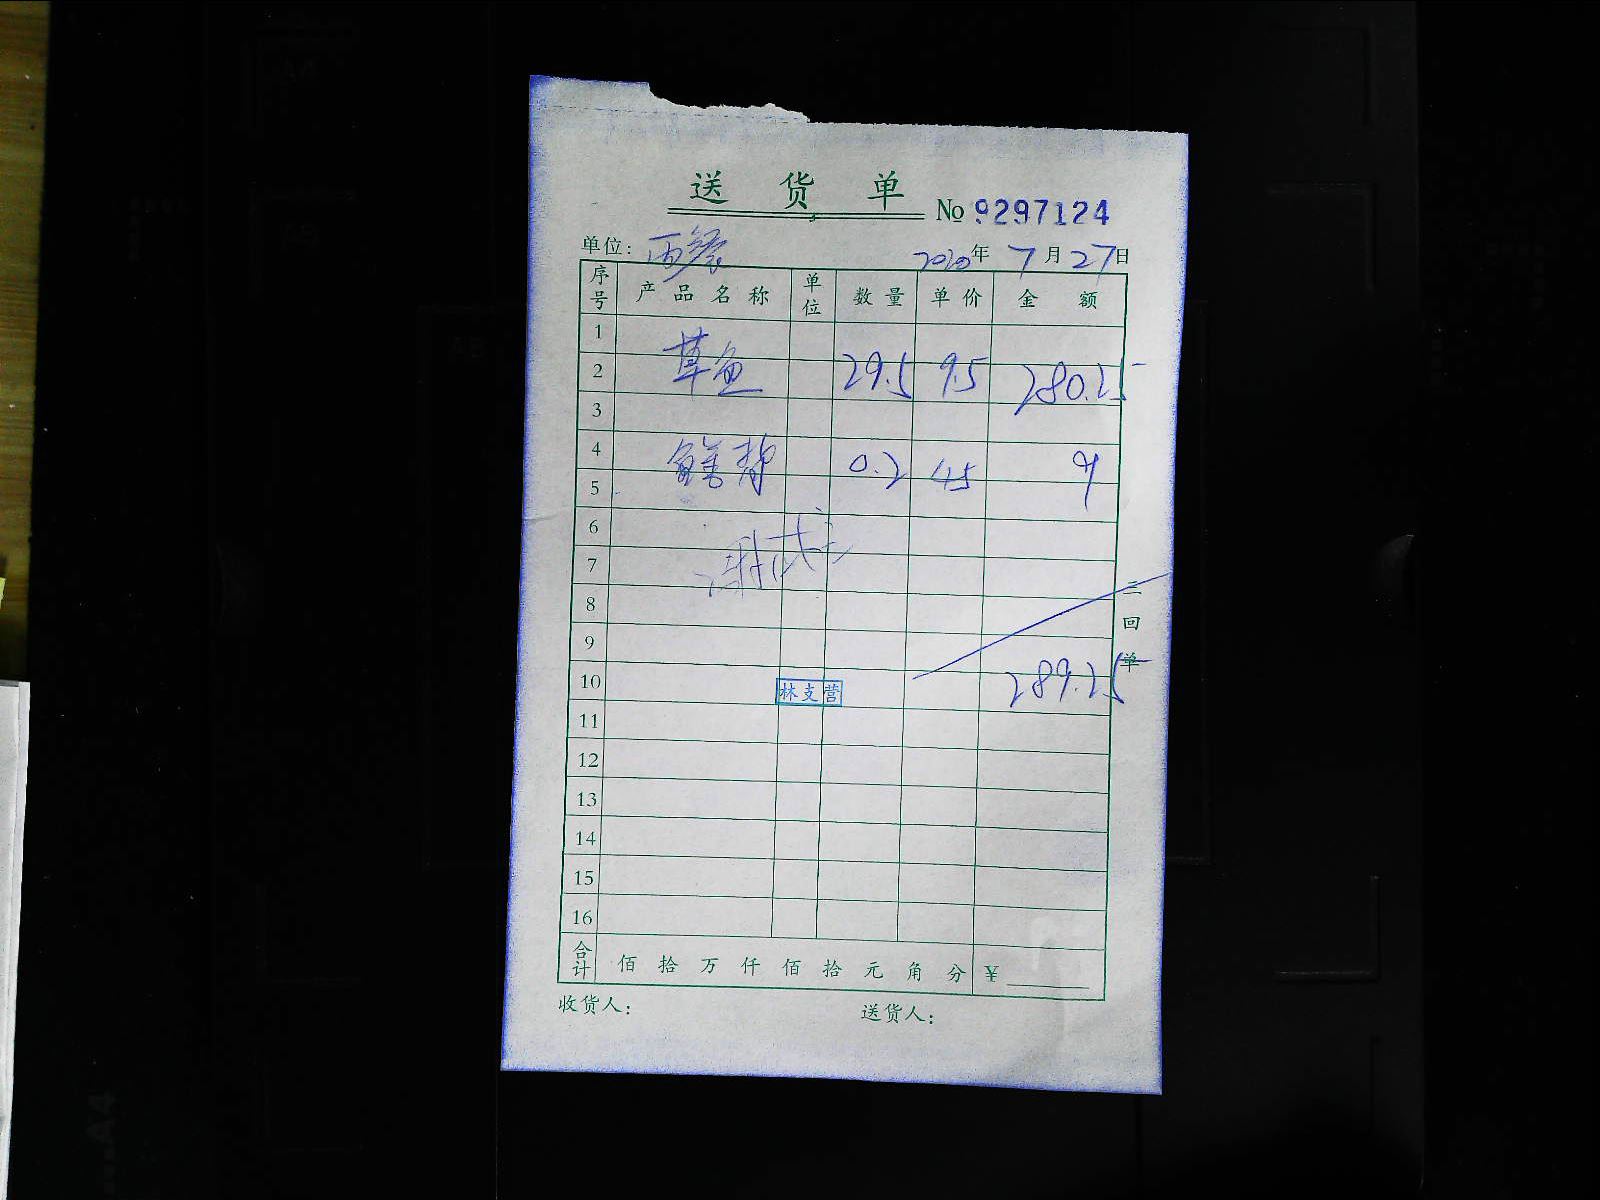 送货单 № 9297124
单位: 西餐 2020年7月27日
序号 产品名称 单位 数量 单价 金额
1
2 草鱼 29.5 9.5 280.25
3
4 0.2 45 9
5
6
7
8
9
10 林支营 289.25
11
12
13
14
15
16
合计 佰拾万仟佰拾元角分 ¥
收货人: 送货人:
二回单
A4